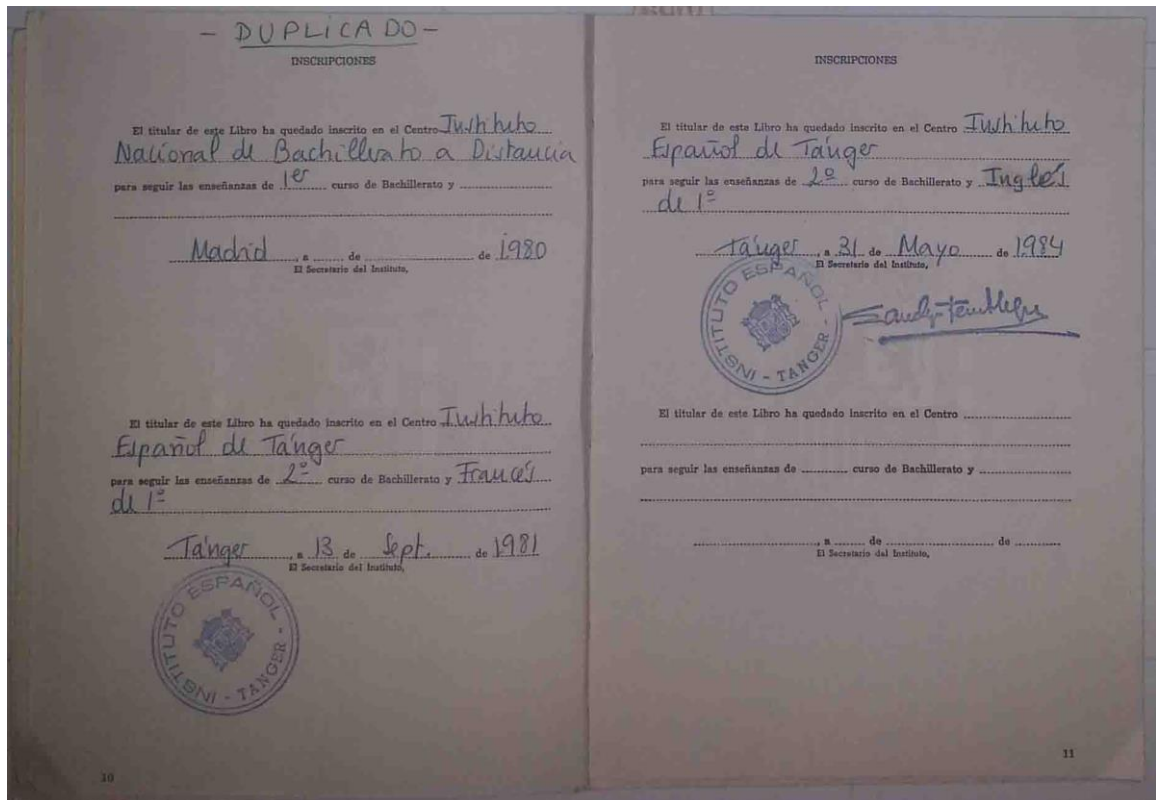 - DUPLICADO -
INSCRIPCIONES
El titular de este Libro ha quedado inscrito en el Centro Instituto
Nacional de Bachillerato a Distancia
para seguir las enseñanzas de 1er curso de Bachillerato y
Madrid, a ........ de ........ de 1980
El Secretario del Instituto,
El titular de este Libro ha quedado inscrito en el Centro Instituto
Español de Tánger
para seguir las enseñanzas de 2º curso de Bachillerato y Francés
de 1º
Tánger, a 13 de Sept. de 1981
El Secretario del Instituto,
INSTITUTO ESPAÑOL - TANGER -
10
INSCRIPCIONES
El titular de este Libro ha quedado inscrito en el Centro Instituto
Español de Tánger
para seguir las enseñanzas de 2º curso de Bachillerato y Inglés
de 1º
Tánger, a 31 de Mayo de 1984
El Secretario del Instituto,
INSTITUTO ESPAÑOL - TANGER -
El titular de este Libro ha quedado inscrito en el Centro
para seguir las enseñanzas de ........ curso de Bachillerato y
........, a ........ de ........ de ........
El Secretario del Instituto,
11